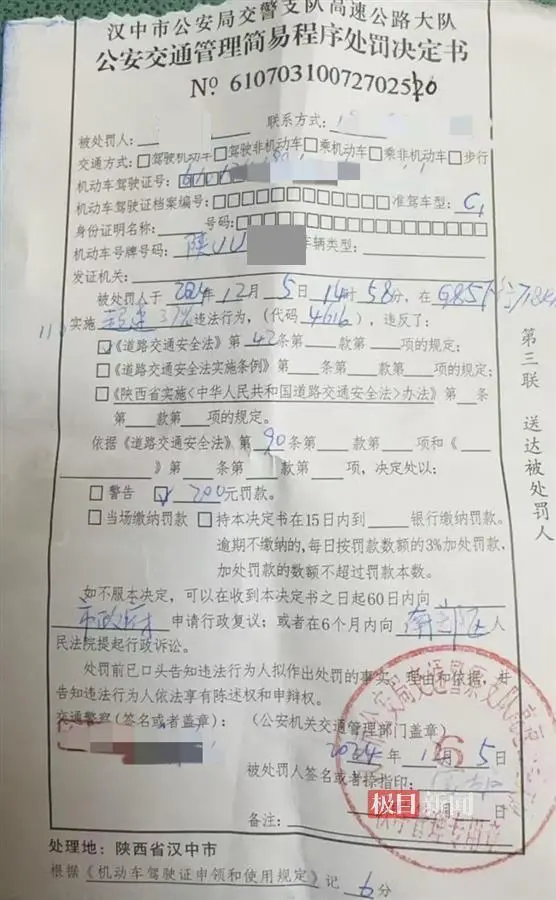 汉中市公安局交警支队高速公路大队
公安交通管理简易程序处罚决定书
№ 6107031007270252
被处罚人： 联系方式：
交通方式：□驾驶机动车□驾驶非机动车□乘机动车□乘非机动车□步行
机动车驾驶证号：
机动车驾驶证档案编号： 准驾车型：C1
身份证明名称： 号码：
机动车号牌号码：陕UU 车辆类型：
发证机关：
被处罚人于 2024年12月5日14时58分，在G85下行
实施超速37%违法行为，（代码4616），违反了：
☑《道路交通安全法》第42条第 款第 项的规定；
□《道路交通安全法实施条例》第 条第 款第 项的规定；
□《陕西省实施<中华人民共和国道路交通安全法>办法》第 条
第 款第 项的规定。
依据《道路交通安全法》第90条第 款第 项和《
》第 条第 款第 项，决定处以：
□警告 ☑ 200元罚款。
□当场缴纳罚款 □持本决定书在15日内到 银行缴纳罚款。
逾期不缴纳的，每日按罚款数额的3%加处罚款，
加处罚款的数额不超过罚款本数。
如不服本决定，可以在收到本决定书之日起60日内向
市政府 申请行政复议；或者在6个月内向 南郑区 人
民法院提起行政诉讼。
处罚前已口头告知违法行为人拟作出处罚的事实、理由和依据，并
告知违法行为人依法享有陈述权和申辩权。
交通警察（签名或者盖章）： （公安机关交通管理部门盖章）
2024年12月5日
被处罚人签名或者捺指印：
日
备注：
处理地：陕西省汉中市
根据《机动车驾驶证申领和使用规定》记6分
第三联 送达被处罚人
公安局交通警察支队高
6
极目新闻